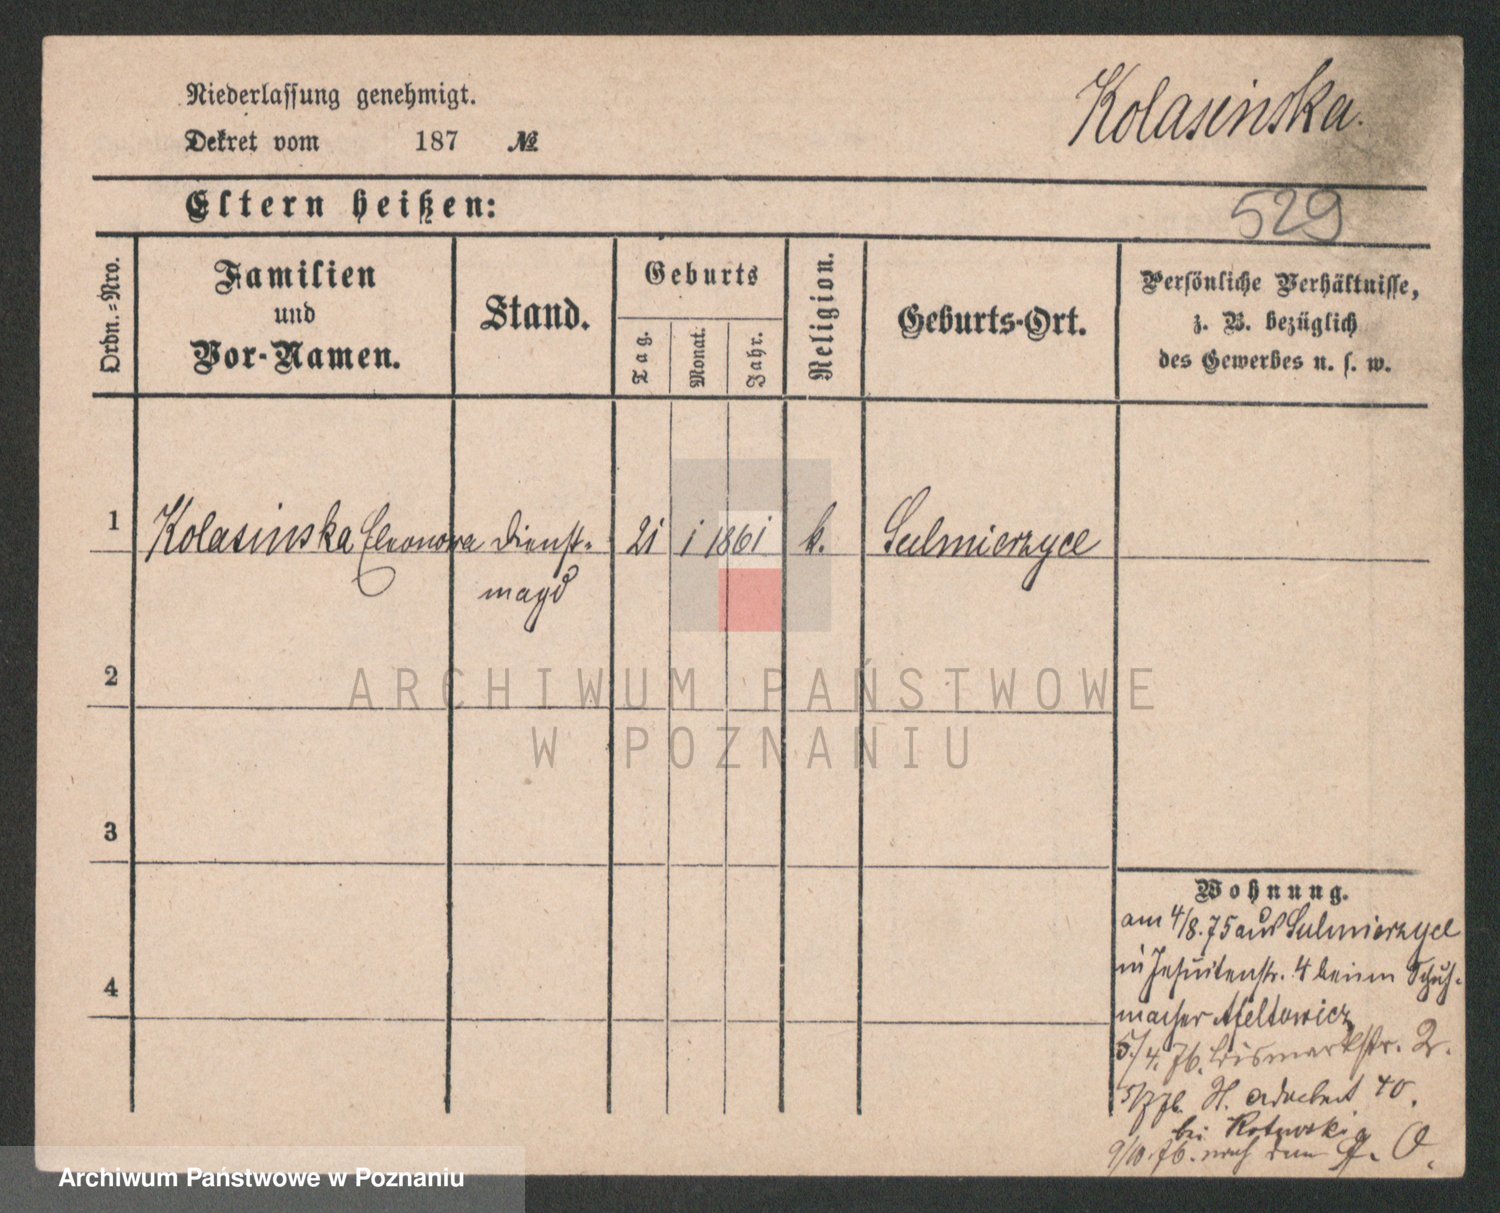 Niederlassung genehmigt.
Kolasinska.
Dekret vom 187 №
Eltern heißen:
529
Ordn.-Nro.
Familien
und
Vor-Namen.
Stand.
Geburts
Tag.
Monat.
Jahr.
Religion.
Geburts-Ort.
Persönliche Verhältnisse,
z. B. bezüglich
des Gewerbes u. s. w.
1 Kolasinska Eleonora Dienst- 21 1 1861 k. Sulmierzyce
magd
2
ARCHIWUM PAŃSTWOWE
W POZNANIU
3
4
Wohnung.
am 4/8. 75 aus Sulmierzyce
in Jesuitenstr. 4 beim Schuh-
macher Afeltowicz
5/4. 76. Bismarkstr. 2.
5/7 76. St. Adalbert 40.
bei
9/10. 76. nach
Archiwum Państwowe w Poznaniu